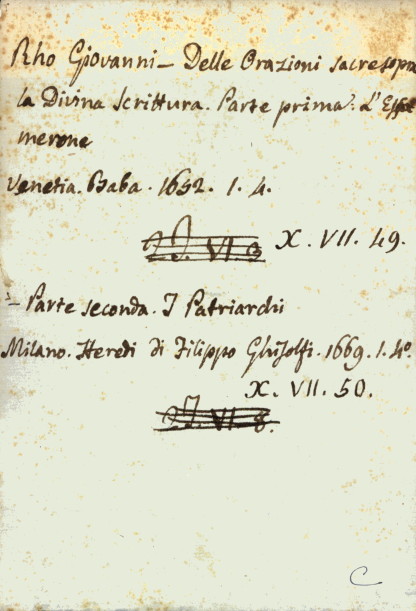 Rho Giovanni - Delle Orazioni sacre sopra
la Divina Scrittura. Parte prima. L'Essa
merone
Venetia. Baba. 1652. 1. 4.
X. VII. 49.
- Parte seconda. I Patriarchi
Milano. Heredi di Filippo Ghisolfi. 1669. 1. 4°.
X. VII. 50.
C